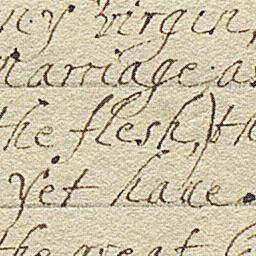 ny virgin,
marriage. a
the flesh,) th
yet haue
the great